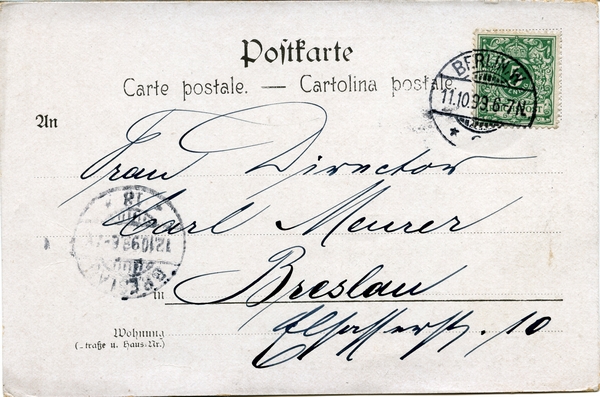 Postkarte
Carte postale. — Cartolina postale.
BERLIN W
11.10.99.6-7N.
An
Frau Director
Carl Meurer
in Breslau
Elsasserstr. 10
Wohnung
(Straße u. Haus-Nr.)